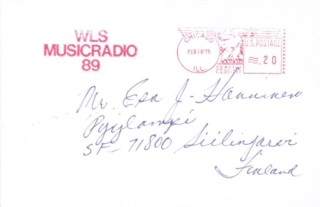 WLS
MUSICRADIO
89
CHICAGO
FEB 18
ILL
U.S. POSTAGE
.20
Mr. Esa J. Hanninen
SF-71800 Siilinjarvi
Finland